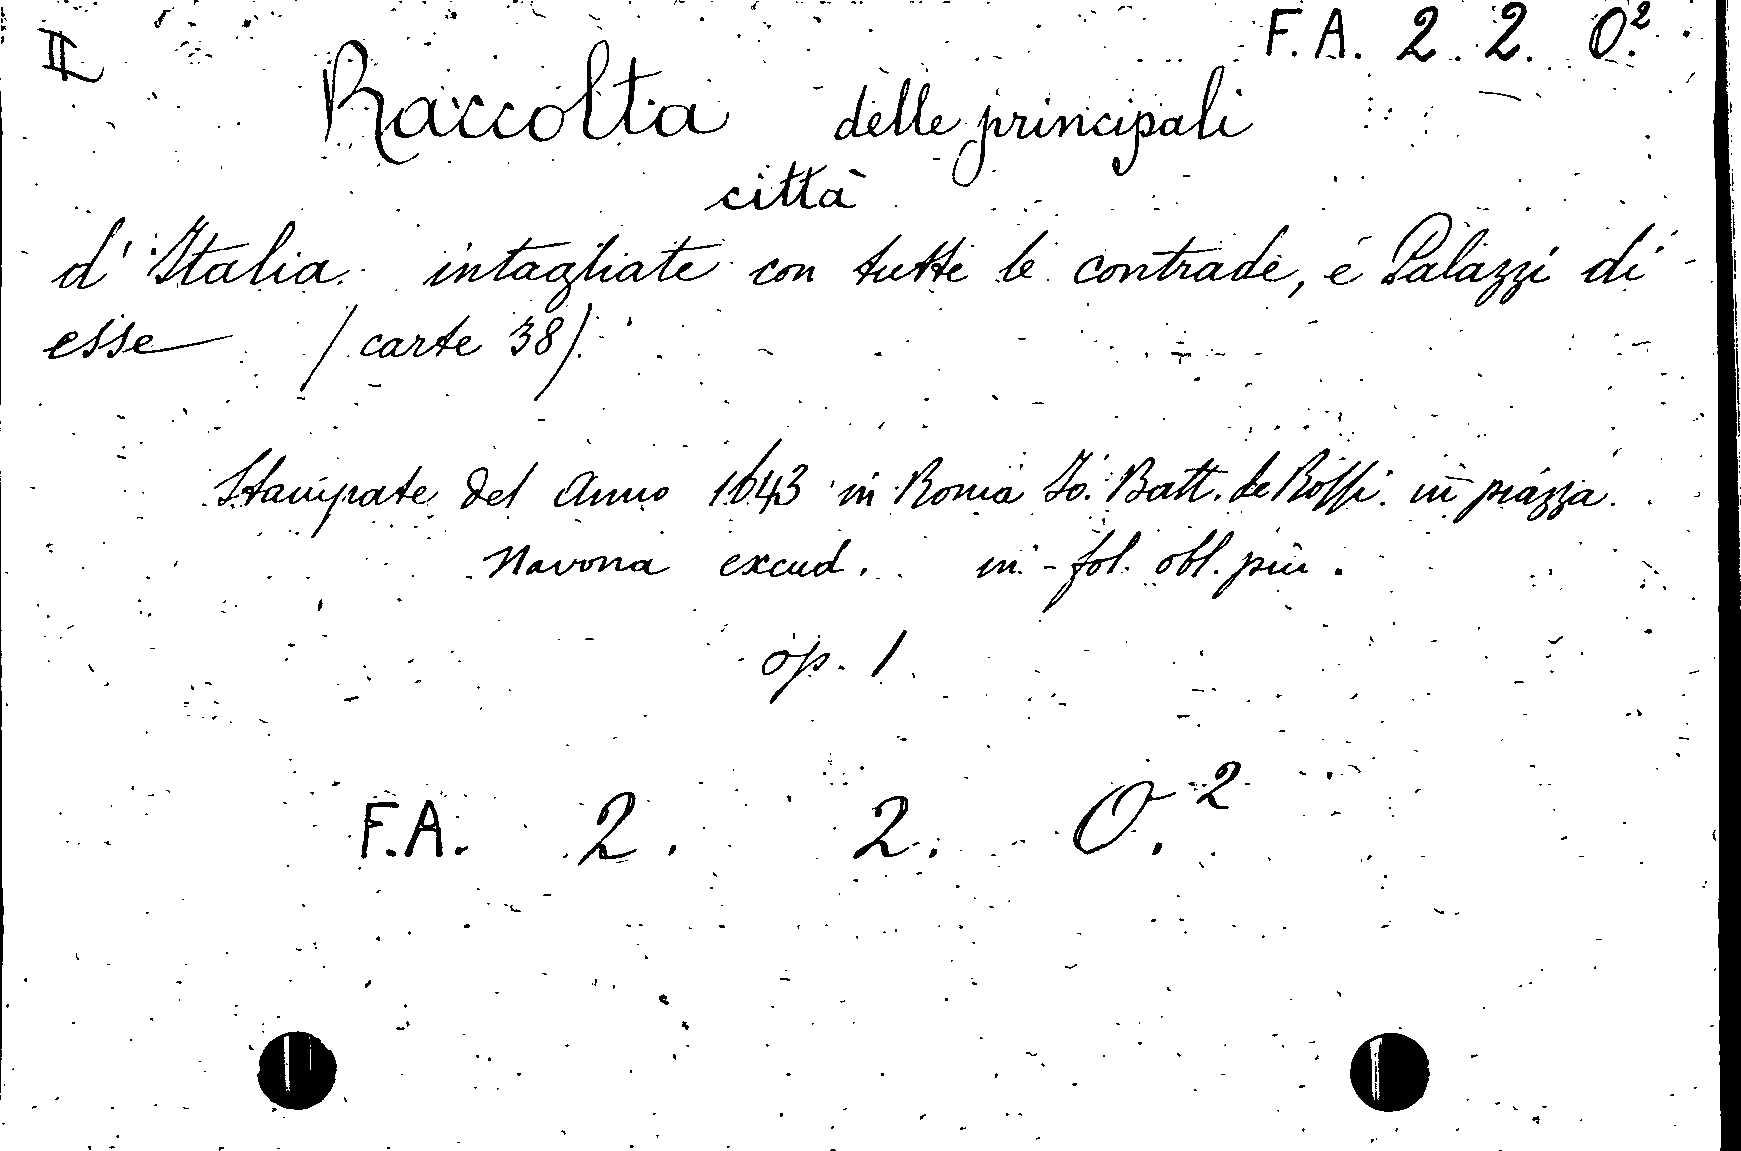 II
F. A. 2. 2. O.²
Raccolta delle principali
città
d'Italia intagliate con tutte le contrade, e Palazzi di
esse (carte 38).
Stampate del Anno 1643 in Roma Io. Batt. de Rossi in piazza
Navona excud. in-fol. obl. piu.
op. 1
F.A. 2. 2. O.²